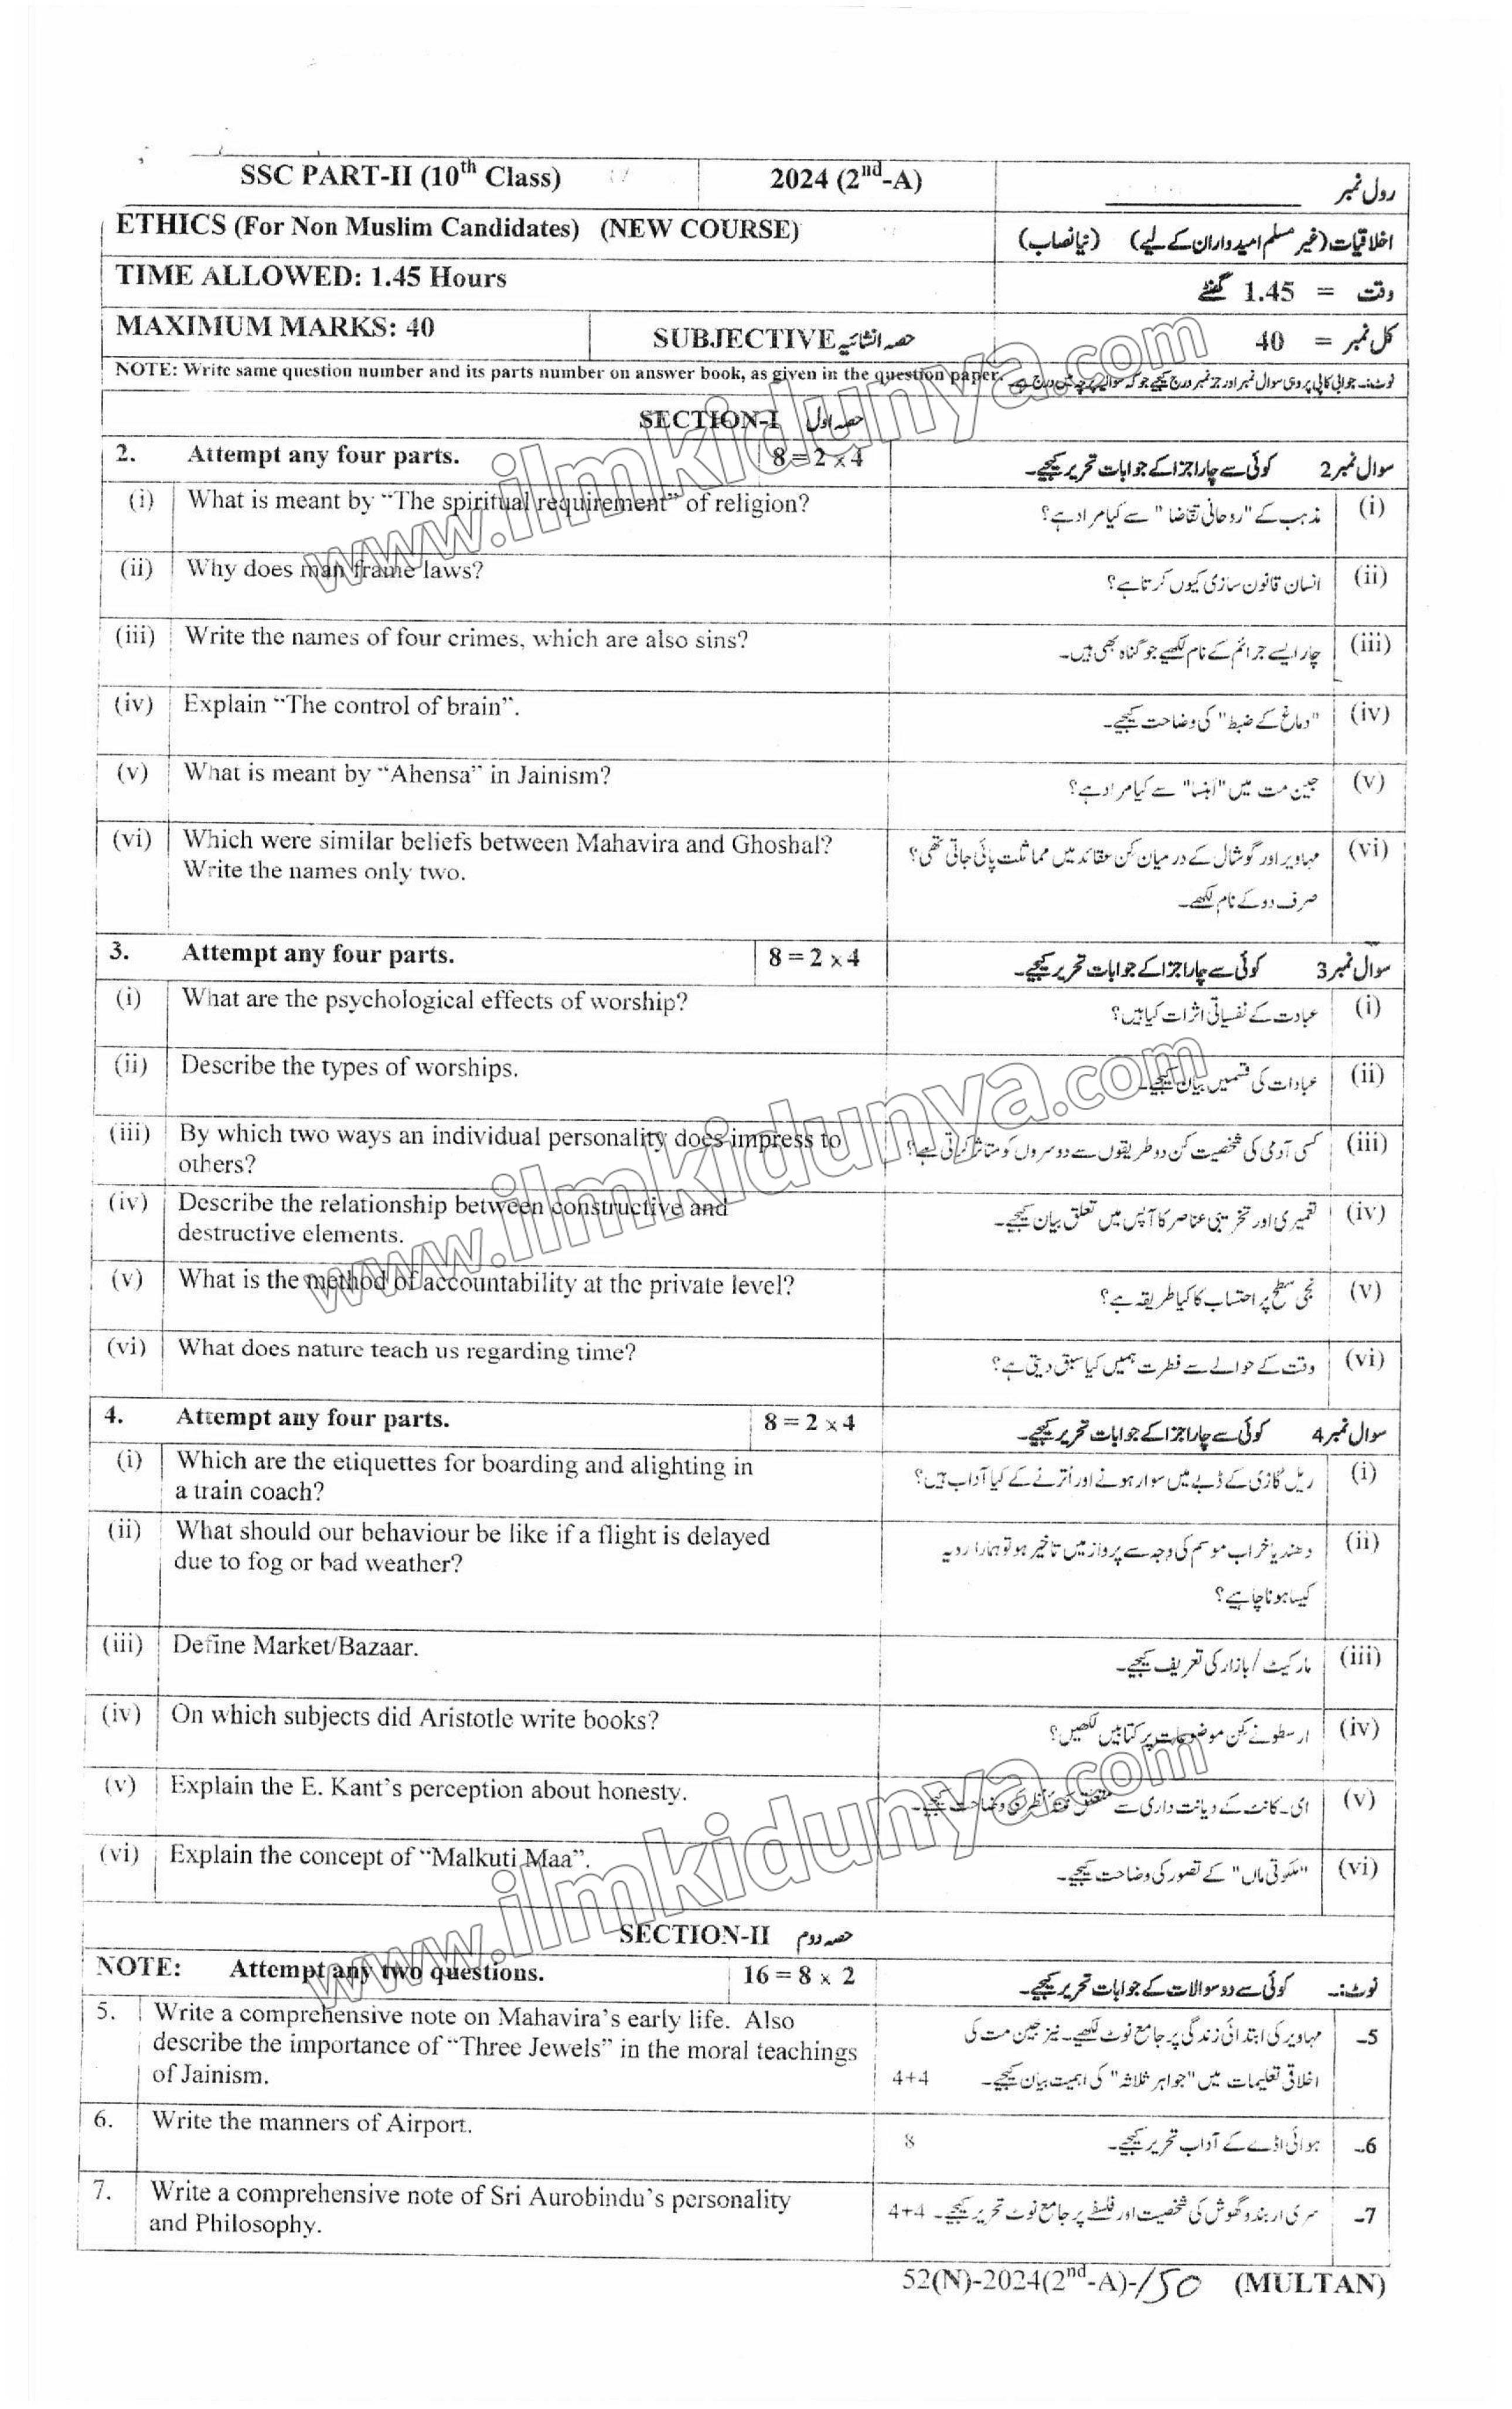 SSC PART-II (10th Class) 2024 (2nd-A) رول نمبر
ETHICS (For Non Muslim Candidates) (NEW COURSE) اخلاقیات (غیر مسلم امیدواران کے لیے) (نیا نصاب)
TIME ALLOWED: 1.45 Hours وقت = 1.45 گھنٹے
MAXIMUM MARKS: 40 SUBJECTIVE حصہ انشائیہ کل نمبر = 40
NOTE: Write same question number and its parts number on answer book, as given in the question paper. نوٹ:۔ جوابی کاپی پر وہی سوال نمبر اور جز نمبر درج کیجیے جو کہ سوالیہ پرچہ میں درج ہے۔
SECTION-I حصہ اول
2. Attempt any four parts. 8 = 2 x 4 سوال نمبر 2 کوئی سے چار اجزا کے جوابات تحریر کیجیے۔
(i) What is meant by “The spiritual requirement” of religion? مذہب کے "روحانی تقاضا" سے کیا مراد ہے؟ (i)
(ii) Why does man frame laws? انسان قانون سازی کیوں کرتا ہے؟ (ii)
(iii) Write the names of four crimes, which are also sins? چار ایسے جرائم کے نام لکھیے جو گناہ بھی ہیں۔ (iii)
(iv) Explain “The control of brain”. "دماغ کے ضبط" کی وضاحت کیجیے۔ (iv)
(v) What is meant by “Ahensa” in Jainism? جین مت میں "اہنسا" سے کیا مراد ہے؟ (v)
(vi) Which were similar beliefs between Mahavira and Ghoshal? مہاویر اور گوشال کے درمیان کن عقائد میں مماثلت پائی جاتی تھی؟ (vi)
Write the names only two. صرف دو کے نام لکھیے۔
3. Attempt any four parts. 8 = 2 x 4 سوال نمبر 3 کوئی سے چار اجزا کے جوابات تحریر کیجیے۔
(i) What are the psychological effects of worship? عبادت کے نفسیاتی اثرات کیا ہیں؟ (i)
(ii) Describe the types of worships. عبادات کی قسمیں بیان کیجیے۔ (ii)
(iii) By which two ways an individual personality does impress to کسی آدمی کی شخصیت کن دو طریقوں سے دوسروں کو متاثر کراتی ہے؟ (iii)
others?
(iv) Describe the relationship between constructive and تعمیری اور تخریبی عناصر کا آپس میں تعلق بیان کیجیے۔ (iv)
destructive elements.
(v) What is the method of accountability at the private level? نجی سطح پر احتساب کا کیا طریقہ ہے؟ (v)
(vi) What does nature teach us regarding time? وقت کے حوالے سے فطرت ہمیں کیا سبق دیتی ہے؟ (vi)
4. Attempt any four parts. 8 = 2 x 4 سوال نمبر 4 کوئی سے چار اجزا کے جوابات تحریر کیجیے۔
(i) Which are the etiquettes for boarding and alighting in ریل گاڑی کے ڈبے میں سوار ہونے اور اُترنے کے کیا آداب ہیں؟ (i)
a train coach?
(ii) What should our behaviour be like if a flight is delayed دھند یا خراب موسم کی وجہ سے پرواز میں تاخیر ہو تو ہمارا رویہ (ii)
due to fog or bad weather? کیسا ہونا چاہیے؟
(iii) Define Market/Bazaar. مارکیٹ / بازار کی تعریف کیجیے۔ (iii)
(iv) On which subjects did Aristotle write books? ارسطو نے کن موضوعات پر کتابیں لکھیں؟ (iv)
(v) Explain the E. Kant’s perception about honesty. ای۔ کانٹ کے دیانت داری سے متعلق نقطہ نظر کی وضاحت کیجیے۔ (v)
(vi) Explain the concept of “Malkuti Maa”. "ملکوتی ماں" کے تصور کی وضاحت کیجیے۔ (vi)
SECTION-II حصہ دوم
NOTE: Attempt any two questions. 16 = 8 x 2 نوٹ:۔ کوئی سے دو سوالات کے جوابات تحریر کیجیے۔
5. Write a comprehensive note on Mahavira’s early life. Also مہاویر کی ابتدائی زندگی پر جامع نوٹ لکھیے۔ نیز جین مت کی 5۔
describe the importance of “Three Jewels” in the moral teachings اخلاقی تعلیمات میں "جواہر ثلاثہ" کی اہمیت بیان کیجیے۔ 4+4
of Jainism.
6. Write the manners of Airport. ہوائی اڈے کے آداب تحریر کیجیے۔ 8 6۔
7. Write a comprehensive note of Sri Aurobindu’s personality سری اربندو گھوش کی شخصیت اور فلسفے پر جامع نوٹ تحریر کیجیے۔ 4+4 7۔
and Philosophy.
52(N)-2024(2nd-A)-150 (MULTAN)
www.ilmkidunya.com
www.ilmkidunya.com
www.ilmkidunya.com